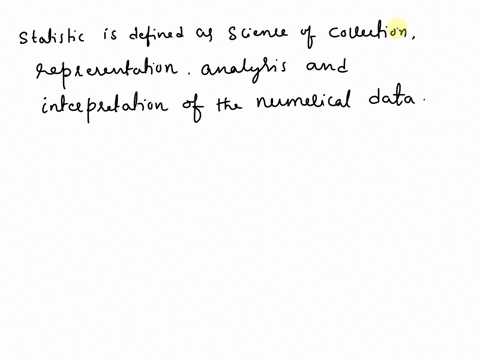 Statistic is defined as Science of Collection,
representation. analysis and
intrepretation of the numerical data.